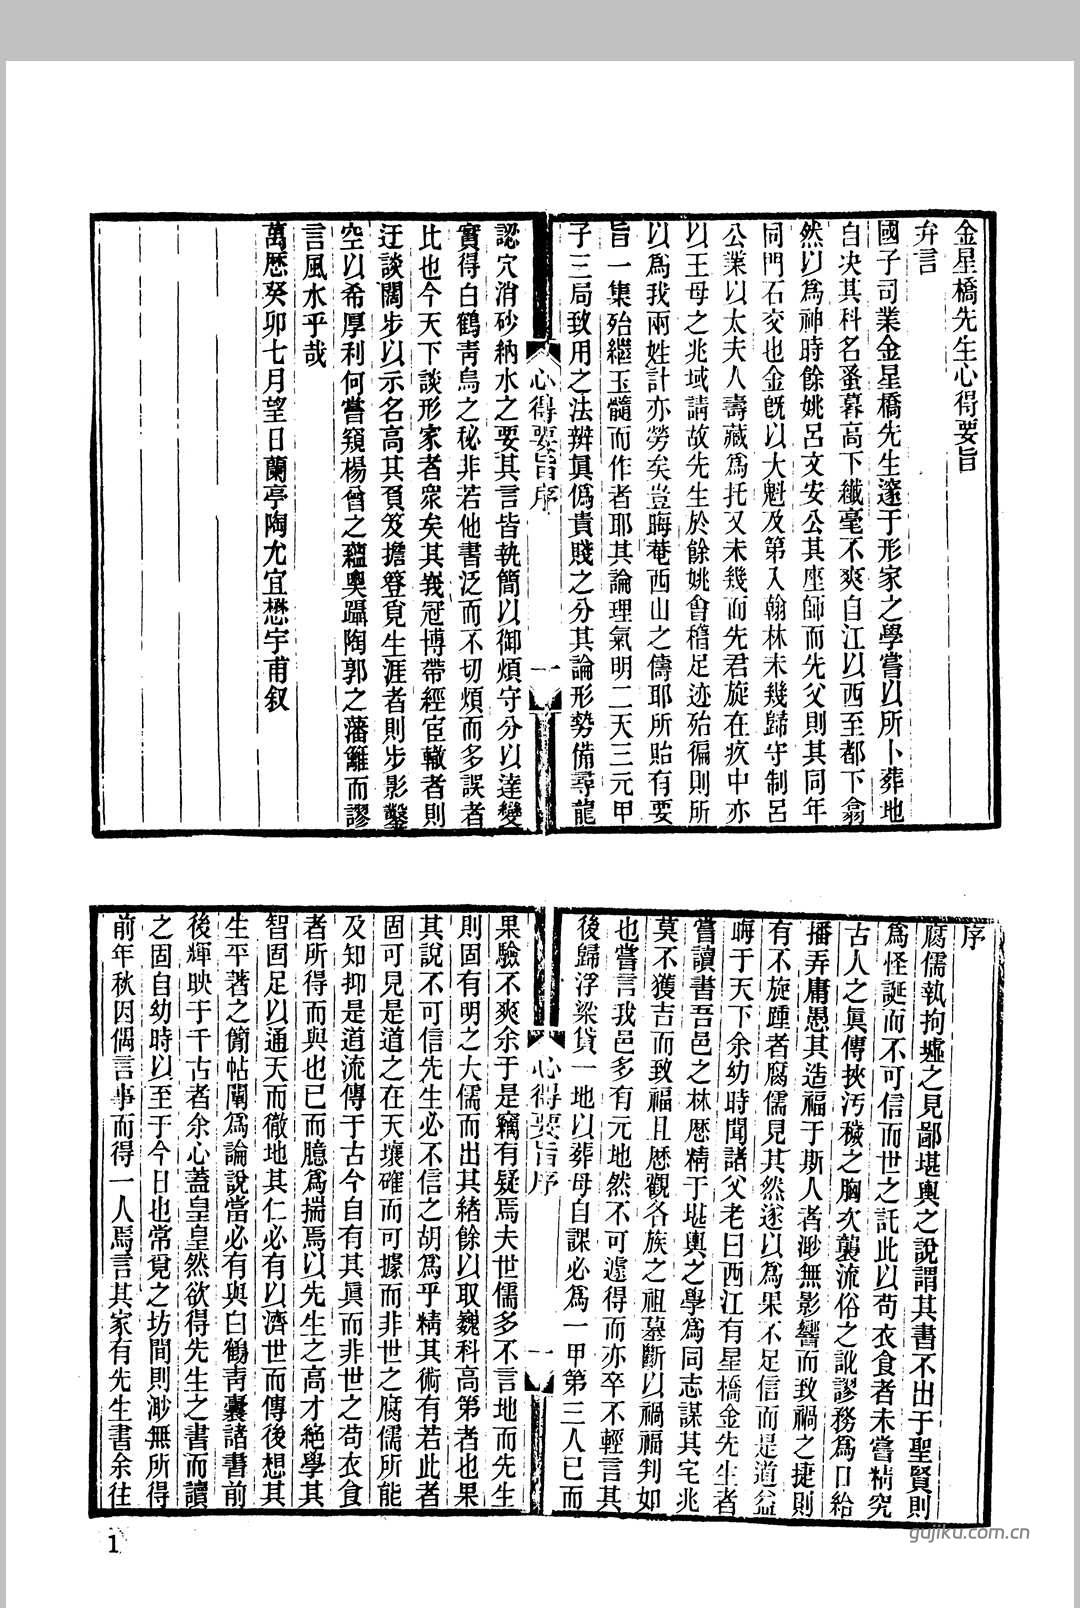 金星橋先生心得要旨
弁言
國子司業金星橋先生邃于形家之學嘗以所卜葬地
自決其科名蚤暮高下纖毫不爽自江以西至都下翕
然以為神時餘姚呂文安公其座師而先父則其同年
同門石交也金旣以大魁及第入翰林未幾歸守制呂
公業以太夫人壽藏爲托又未幾而先君旋在疚中亦
以王母之兆域請故先生於餘姚會稽足迹殆徧則所
以爲我兩姓計亦勞矣豈晦菴西山之儔耶所貽有要
旨一集殆繼玉髓而作者耶其論理氣明二天三元甲
子三局致用之法辨眞僞貴賤之分其論形勢備尋龍
心得要旨序
一
認穴消砂納水之要其言皆執簡以御煩守分以達變
實得白鶴靑烏之秘非若他書泛而不切煩而多誤者
比也今天下談形家者衆矣其峩冠博帶經宦轍者則
迂談闊步以示名高其頁笈擔簦覓生涯者則步影鑿
空以希厚利何嘗窺楊曾之蘊奧躡陶郭之藩籬而謬
言風水乎哉
萬歷癸卯七月望日蘭亭陶允宜懋宇甫叙
序
腐儒執拘墟之見鄙堪輿之說謂其書不出于聖賢則
爲怪誕而不可信而世之託此以苟衣食者未嘗精究
古人之眞傳挾汚穢之胸次襲流俗之訛謬務爲口給
播弄庸愚其造福于斯人者渺無影響而致禍之捷則
有不旋踵者腐儒見其然遂以爲果不足信而是道益
晦于天下余幼時聞諸父老曰西江有星橋金先生者
嘗讀書吾邑之林歷精于堪輿之學爲同志謀其宅兆
莫不獲吉而致福且歷觀各族之祖墓斷以禍福判如
也嘗言我邑多有元地然不可遽得而亦卒不輕言其
後歸浮梁貸一地以葬母自課必爲一甲第三人已而
心得要旨序
一
果驗不爽余于是竊有疑焉夫世儒多不言地而先生
則固有明之大儒而出其緒餘以取巍科高第者也果
其說不可信先生必不信之胡爲乎精其術有若此者
固可見是道之在天壤確而可據而非世之腐儒所能
及知抑是道流傳于古今自有其眞而非世之苟衣食
者所得而與也已而臆爲揣焉以先生之高才絕學其
智固足以通天而徹地其仁必有以濟世而傳後想其
生平著之簡帖闡爲論說當必有與白鶴靑囊諸書前
後輝映于千古者余心蓋皇皇然欲得先生之書而讀
之固自幼時以至于今日也常覓之坊間則渺無所得
前年秋因偶言事而得一人焉言其家有先生書余往
1
gujiku.com.cn